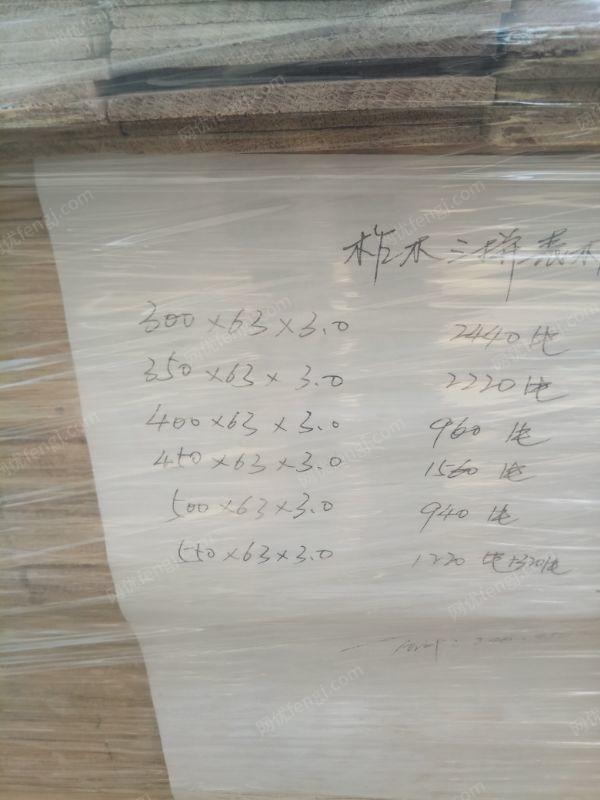 柞木三拼表板
300×63×3.0 2440片
350×63×3.0 2220片
400×63×3.0 960片
450×63×3.0 1560片
500×63×3.0 940片
550×63×3.0 1220片+320片